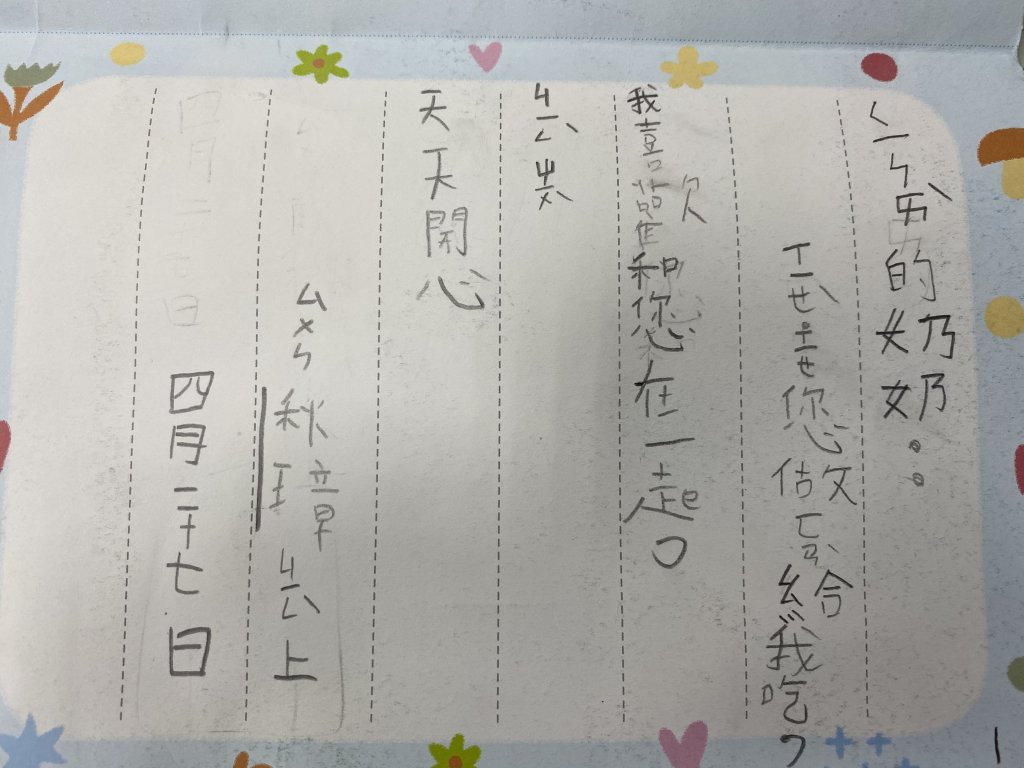 ㄑㄧㄣㄞˋ的奶奶：
ㄒㄧㄝˋ˙ㄒㄧㄝ您做ㄈㄢˋ給我吃，
我喜歡和您在一起。
ㄐㄧㄥˋㄓㄨˋ
天天開心
ㄙㄨㄣ秋璋ㄐㄧㄥˋ上
四月二十七日